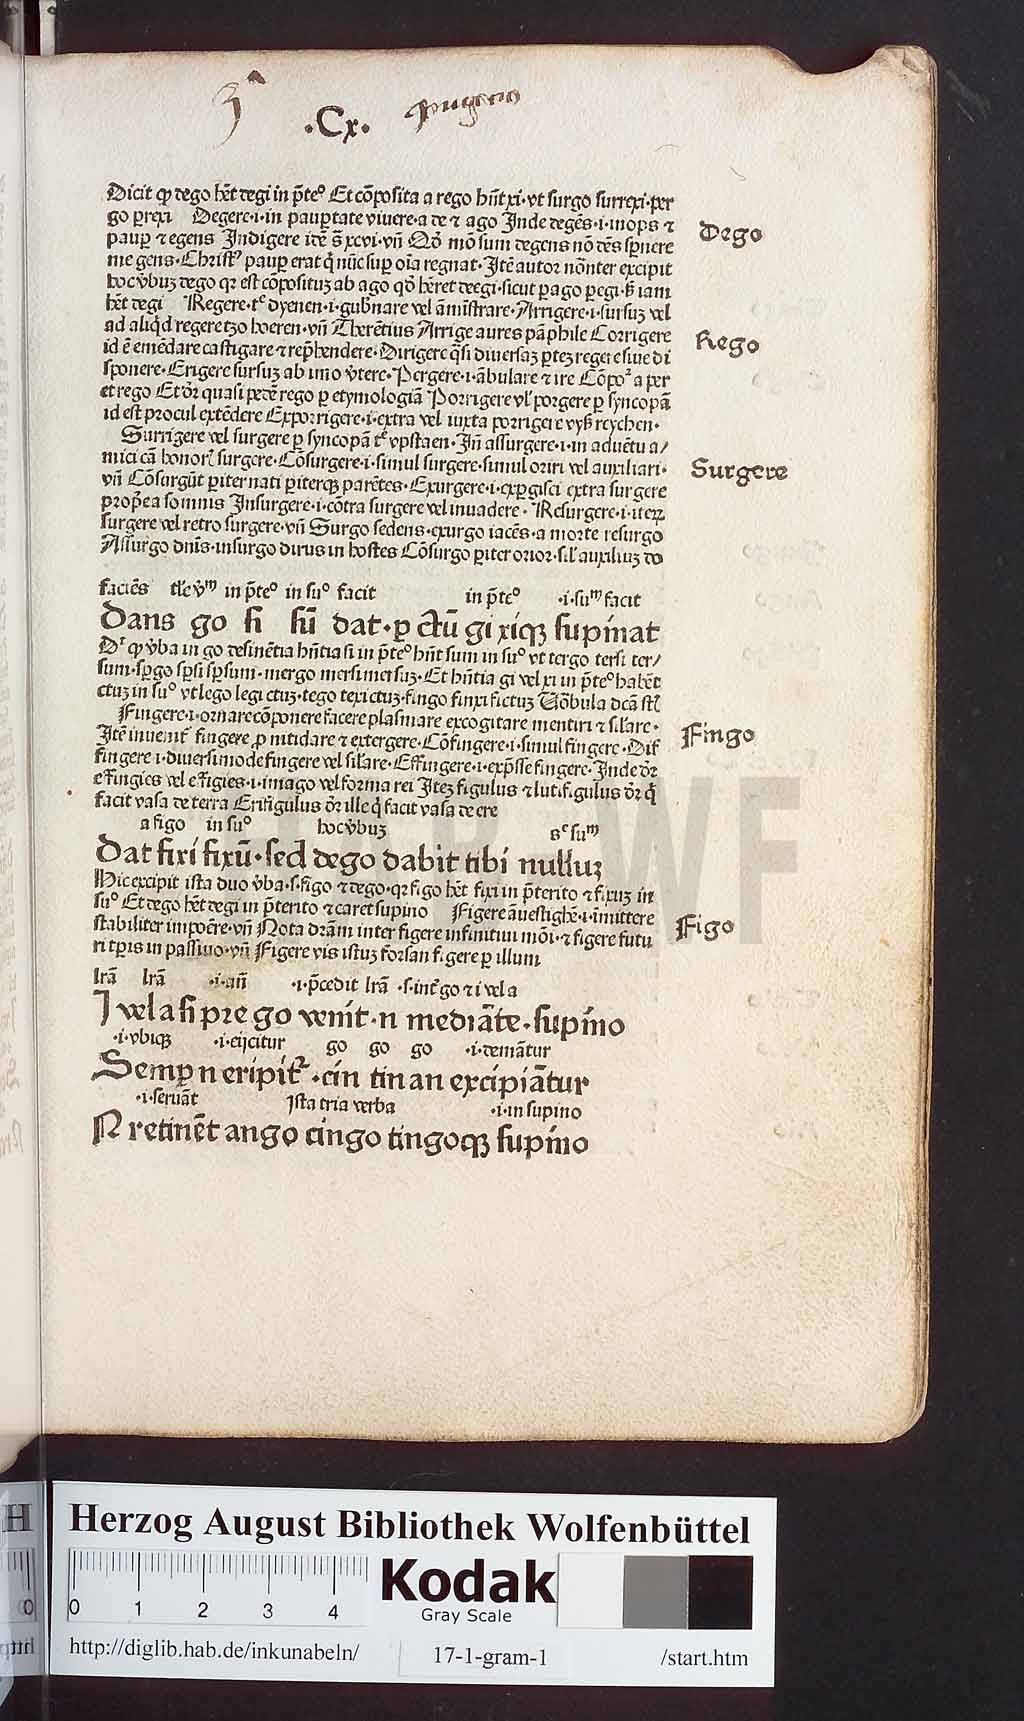 ·Cx·
Dicit ꝙ dego hēt degi in p̄teᵒ Et cōposita a rego hn̄t xi·vt surgo surrexi·per
go ꝑrexi Degere·i·in pauꝑtate viuere·a de ⁊ ago Inde degēs·i·inops ⁊
pauꝑ ⁊ egens Indigere itē
me gens·Christꝰ pauꝑ erat q̄ nūc suꝑ oīa regnat·Itē autor nōnter excipit
hocv̄buꝫ dego qꝛ est cōposituꝫ ab ago qd̄ hēret deegi·sicut ꝑago ꝑegi·
hēt degi Regere·tᶜ dyenen·i·gub̄nare vel am̄istrare·Arrigere·i·sursuꝫ vel
ad aliqd̄ regere tzo boeren·vn̄ Therētius Arrige aures pāphile Corrigere
id ē emēdare castigare ⁊ rep̄hendere·Dirigere q̄si diuersaꝫ ꝑteꝫ regere siue di
sponere·Erigere sursuꝫ ab imo v̄tere·Pergere·i·ābulare ⁊ ire Cōpoᶻ a per
et rego Et dr̄ quasi pedē rego ꝑ etymologiā Porrigere vl̓ porgere ꝑ syncopā
id est procul extēdere Exporrigere·i·extra vel iuxta porrigere vyß reychen·
Surrigere vel surgere ꝑ syncopā tᶜ vpstaen·Jn̄ assurgere·i·in aduētu a/
mici cā honorꝭ surgere·Cōsurgere·i·simul surgere·simul oriri vel auxiliari·
vn̄ Cōsurgūt ꝑiter nati ꝑiterqꝫ parētes·Exurgere·i·exꝑgisci extra surgere
propꝫea somnis Insurgere·i·cōtra surgere vel inuadere·Resurgere·i·iteꝝ
surgere vel retro surgere·vn̄ Surgo sedens·exurgo iacēs·a morte resurgo
Assurgo dn̄is·insurgo durus in hostes Cōsurgo ꝑiter orior·sil̓ auxiliuꝫ do
faciēs tl̓e v̄ᵐ in p̄teᵒ in suᵒ facit in p̄teᵒ ·i·suᵐ facit
Dans go si sū dat·ꝑ ctū gi xiqꝫ supinat
Dᶻ ꝙ v̄ba in go desinētia hn̄tia si in p̄teᵒ hn̄t sum in suᵒ vt tergo tersi ter/
sum·sꝑgo sꝑsi sꝑsum·mergo mersi mersuꝫ·Et hn̄tia gi vel xi in p̄teᵒ habēt
ctuꝫ in suᵒ vt lego legi ctuꝫ·tego texi ctuꝫ·fingo finxi fictuꝫ
Fingere·i·ornare cōponere facere plasmare excogitare mentiri ⁊ sil̓are·
Itē inuenit̄ fingere ꝓ nitidare ⁊ extergere·Cōfingere·i·simul fingere·Dif
fingere·i·diuersimode fingere vel sil̓are·Effingere·i·exp̄sse fingere·Inde dr̄
effingies vel effigies·i·imago vel forma rei Iteꝫ figulus ⁊ lutifigulus dr̄ q̄
facit vasa de terra Erifigulus dr̄ ille q̄ facit vasa de ere
a figo in suᵒ hocv̄buꝫ sᶜ suᵐ
Dat fixi fixū·sed dego dabit tibi nulluꝫ
Hic excipit ista duo v̄ba·s·figo ⁊ dego·qꝛ figo hēt fixi in p̄terito ⁊ fixuꝫ in
suᵒ Et dego hēt degi in p̄terito ⁊ caret supino Figere
stabiliter impoēre·vn̄ Nota dr̄am inter figere infinitiui mōi·⁊ figere futu
ri tꝑis in passiuo·vn̄ Figere vis istuꝫ forsan figere ꝑ illum
lr̄ā lr̄ā ·i·an̄ ·i·p̄cedit lr̄ā ·s·int̄ go ⁊ i vel a
I vel a si pre go venit·n mediāte·supino
·i·vbiqꝫ ·i·eijcitur go go go ·i·demātur
Semꝑ n eripitᶻ·cin tin an excipiātur
·i·seruāt Ista tria verba ·i·in supino
N retinēt ango cingo tingoqꝫ supino
Dego
Rego
Surgere
Fingo
Figo
HAB-WF
Herzog August Bibliothek Wolfenbüttel
0 1 2 3 4
Kodak
Gray Scale
http://diglib.hab.de/inkunabeln/
17-1-gram-1
/start.htm